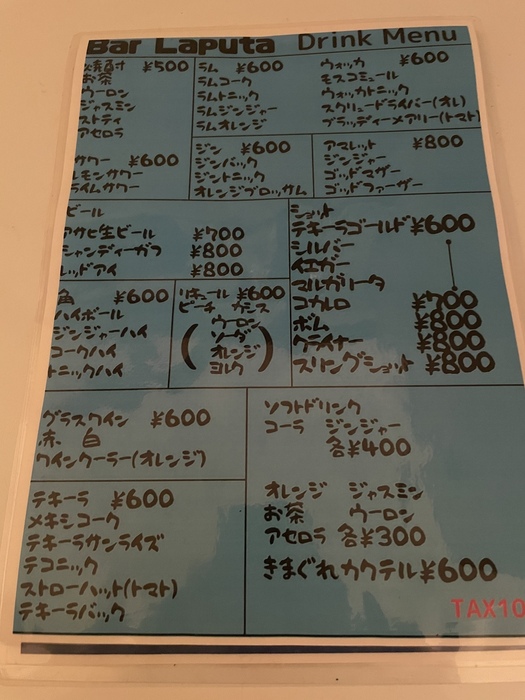 Bar Laputa Drink Menu
焼酎 ¥500
お茶
ウーロン
ジャスミン
ストティ
アセロラ
サワー ¥600
レモンサワー
ライムサワー
ラム ¥600
ラムコーク
ラムトニック
ラムジンジャー
ラムオレンジ
ウォッカ ¥600
モスコミュール
ウォッカトニック
スクリュードライバー(オレ)
ブラッディーメアリー(トマト)
ジン ¥600
ジンバック
ジントニック
オレンジブロッサム
アマレット ¥800
ジンジャー
ゴッドマザー
ゴッドファーザー
ビール
アサヒ生ビール ¥700
シャンディーガフ ¥800
レッドアイ ¥800
ショット
テキーラゴールド ¥600
シルバー
イエガー
マルガリータ
コカレロ ¥700
ボム ¥800
クライナー ¥800
スリングショット ¥800
角 ¥600
ハイボール
ジンジャーハイ
コークハイ
トニックハイ
リキュール ¥600
ピーチ カシス
(ウーロン
ソーダ
オレンジ
ミルク)
グラスワイン ¥600
赤 白
ワインクーラー(オレンジ)
テキーラ ¥600
メキシコーク
テキーラサンライズ
テコニック
ストローハット(トマト)
テキーラバック
ソフトドリンク
コーラ ジンジャー
各¥400
オレンジ ジャスミン
お茶 ウーロン
アセロラ 各¥300
きまぐれカクテル ¥600
TAX10